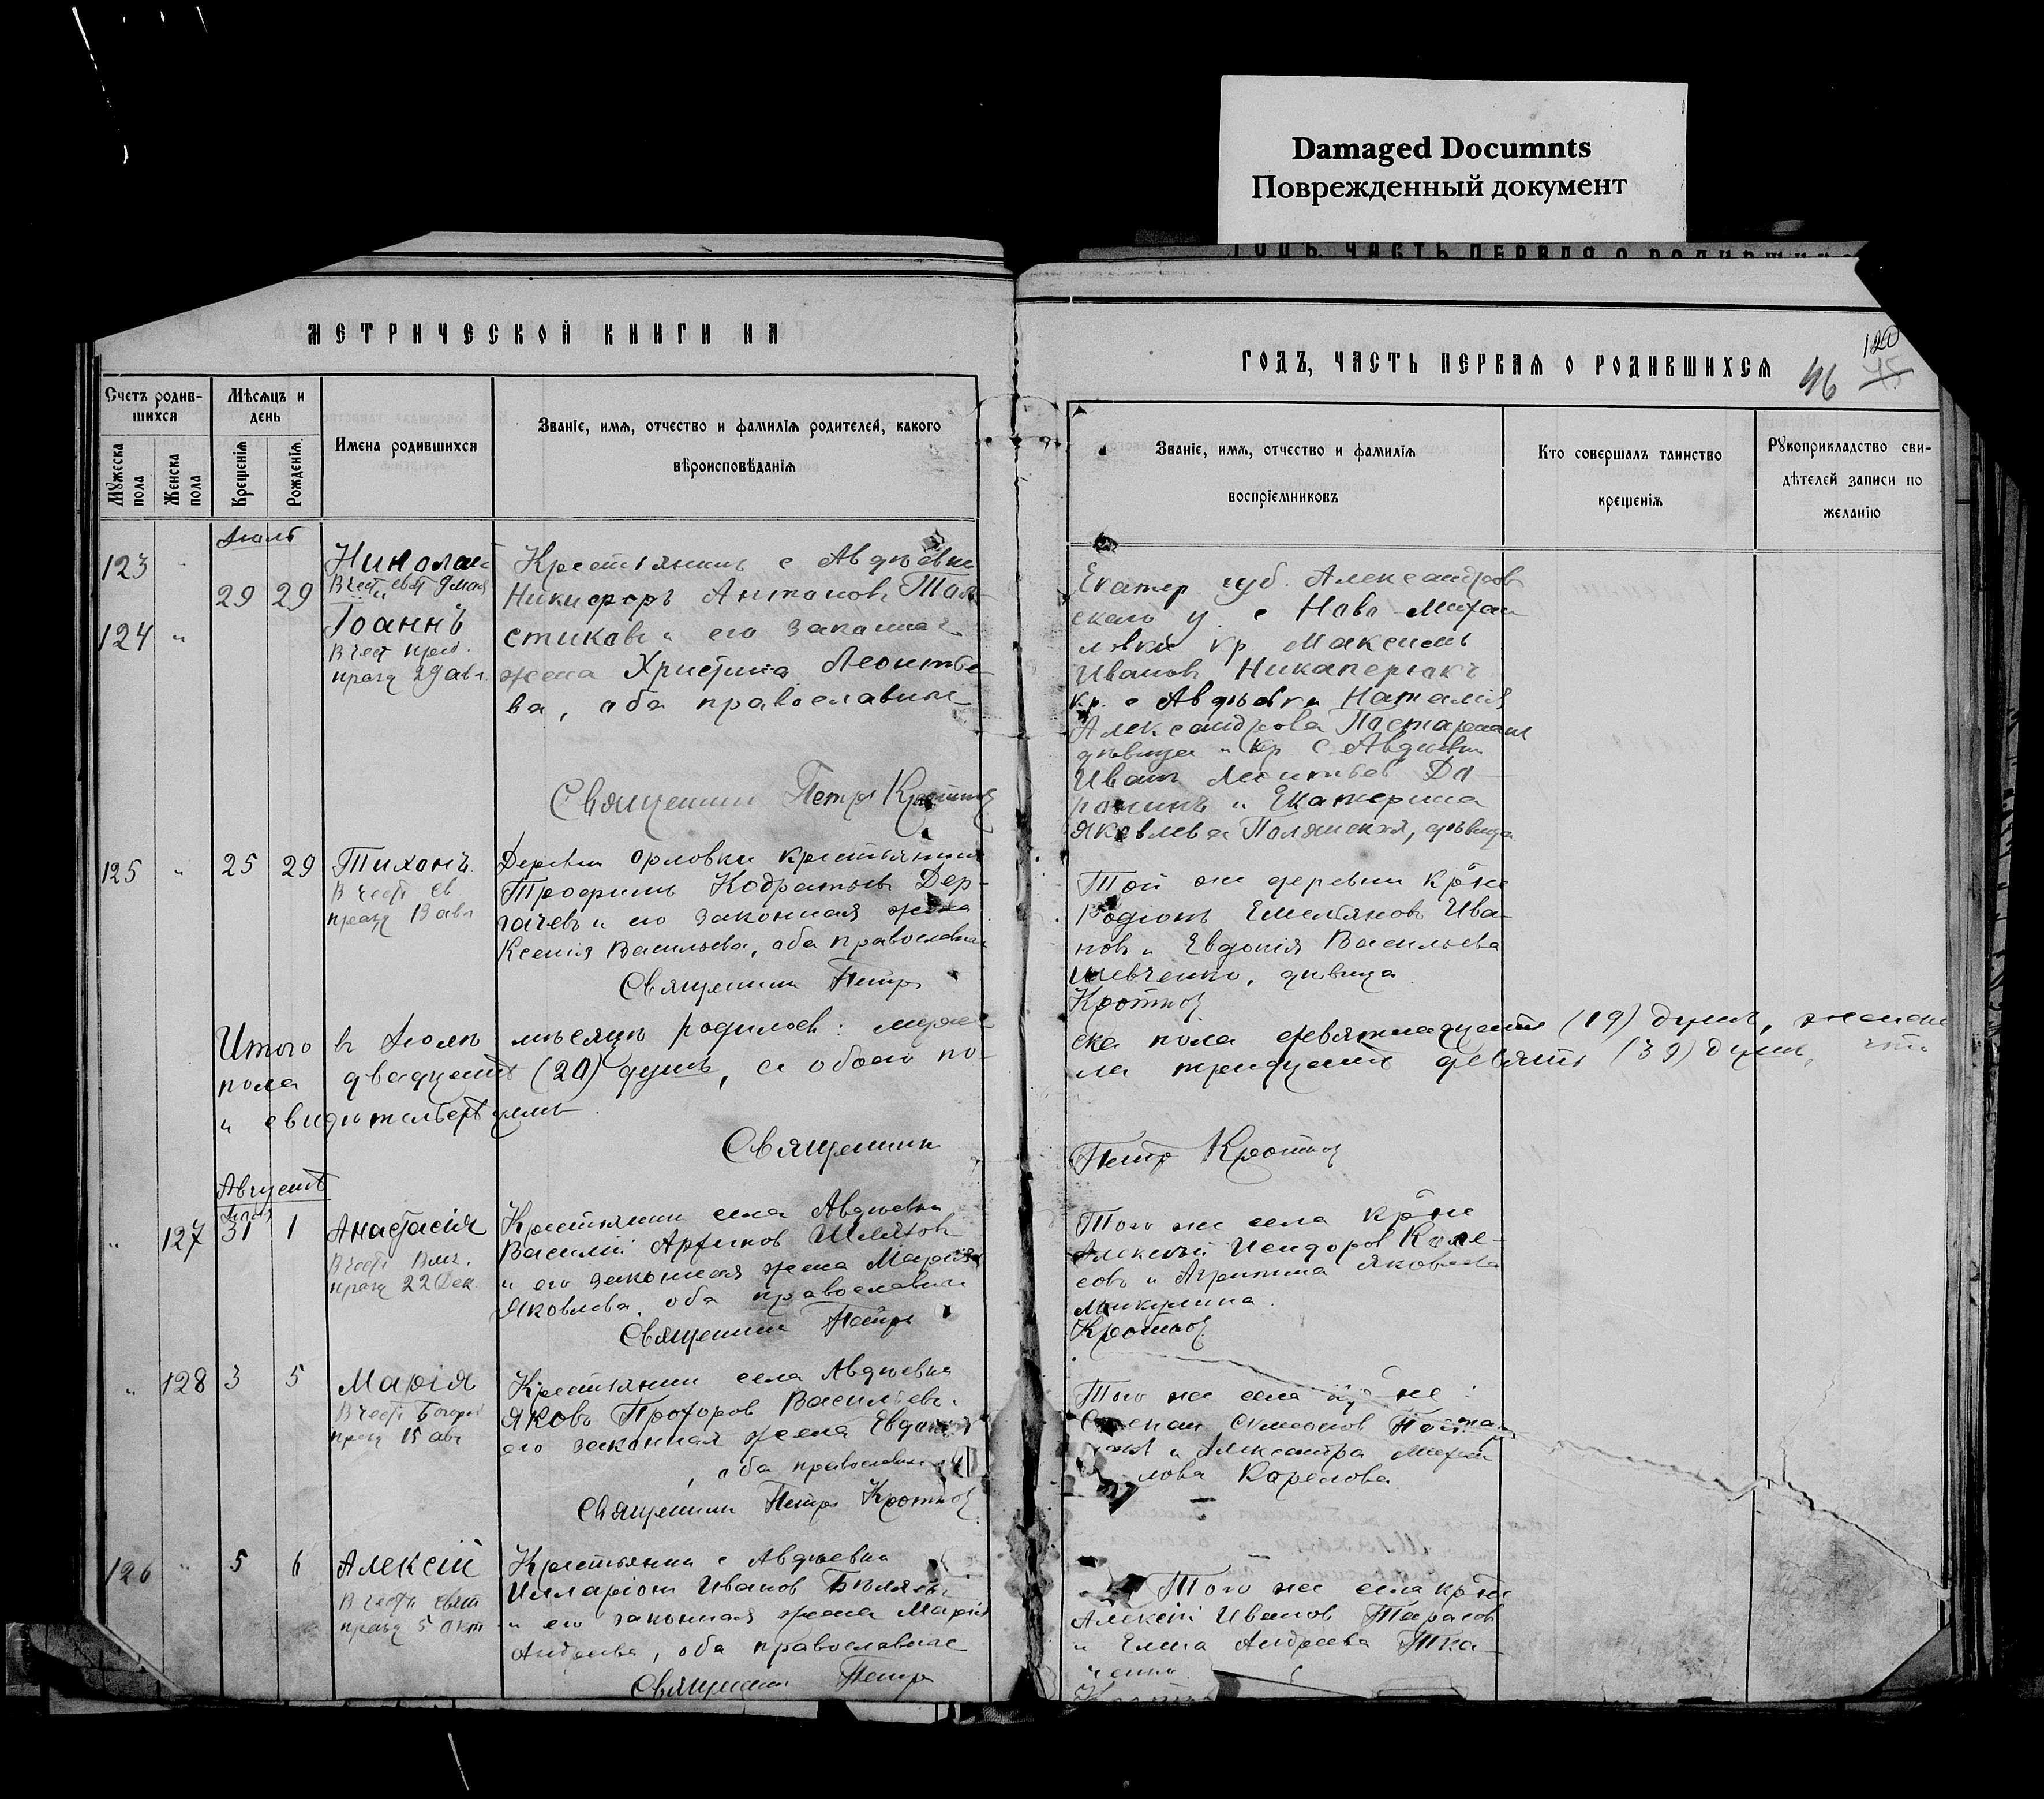 Damaged Documnts
Поврежденный документ
МЕТРИЧЕСКОЙ КНИГИ НА
ГОДЪ, ЧАСТЬ ПЕРВАЯ О РОДИВШИХСЯ
46
120
Счетъ родив-
шихся
Мѣсяцъ и
день
Мужеска пола
Женска пола
Крещенія
Рожденія
Имена родившихся
Званіе, имя, отчество и фамилія родителей, какого
вѣроисповѣданія
Званіе, имя, отчество и фамилія
воспріемниковъ
Кто совершалъ таинство
крещенія
Рукоприкладство сви-
дѣтелей записи по
желанію
Іюль
123 29 29 Николай
В честь свят 9 мая
124 " Іоаннъ
В чест пред.
празд 29 авг.
Крестьянинъ с Авдѣевки
Никифоръ Антоновъ Тол-
стиковъ и его законная
жена Христина Леонтье
ва, оба православные
Священникъ Петръ Кротков
Екатер губ. Александров
скаго у. с Ново-Михай
ловки кр Максимъ
Ивановъ
кр. с Авдѣевки Наталія
Александрова
дѣвица и кр с Авдѣевки
Иванъ Леонтьев До-
ронинъ и Екатерина
Яковлева Полянская, дѣвица
125 " 25 29 Тихонъ
В честь св
празд 13 авг
Деревни Орловки крестьянинъ
Трофимъ Кодратьевъ Дер-
гачевъ и его законная жена
Ксенія Васильева, оба православные
Священникъ Петръ
Той же деревни кр-не
Родіонъ Емельяновъ Ива-
новъ и Евдокія Васильева
Шевченко, дѣвица
Кротков
Итого въ Іюлѣ мѣсяцѣ родилось: муже
ска пола девятнадцать (19) душъ, женска
пола двадцать (20) душъ, а обоего по-
ла тридцать девять (39) душъ, что
и свидѣтельствуемъ
Священникъ
Петръ Кротков
Августъ
Іюля
" 127 31 1 Анастасія
В честь Вмч.
празд 22 Дек.
Крестьянинъ села Авдѣевки
Василій
и его законная жена Марія
Яковлева, оба православные
Священникъ Петръ
Того же села кр-не
Алексѣй Исидоров Коле-
совъ и Агриппина Яковлева
Микулина.
Кротков
" 128 3 5 Марія
В честь Богор
празд 15 авг
Крестьянинъ села Авдѣевки
Яковъ Прохоров Васильевъ,
его законная жена Евдокія
, оба православные
Священникъ Петръ Кротков
Того же села кр-не:
Степан Симеонов
и Александра Михай
лова Корелова
126 " 5 6 Алексій
В честь свят
празд 5 окт
Крестьянинъ с Авдѣевки
Илларіонъ Иванов
и его законная жена Марія
Андреева, оба православные
Священникъ Петръ
Того же села кр-не
Алексѣй Иванов Тарасов
и Елена Андреева Тка-
ченко